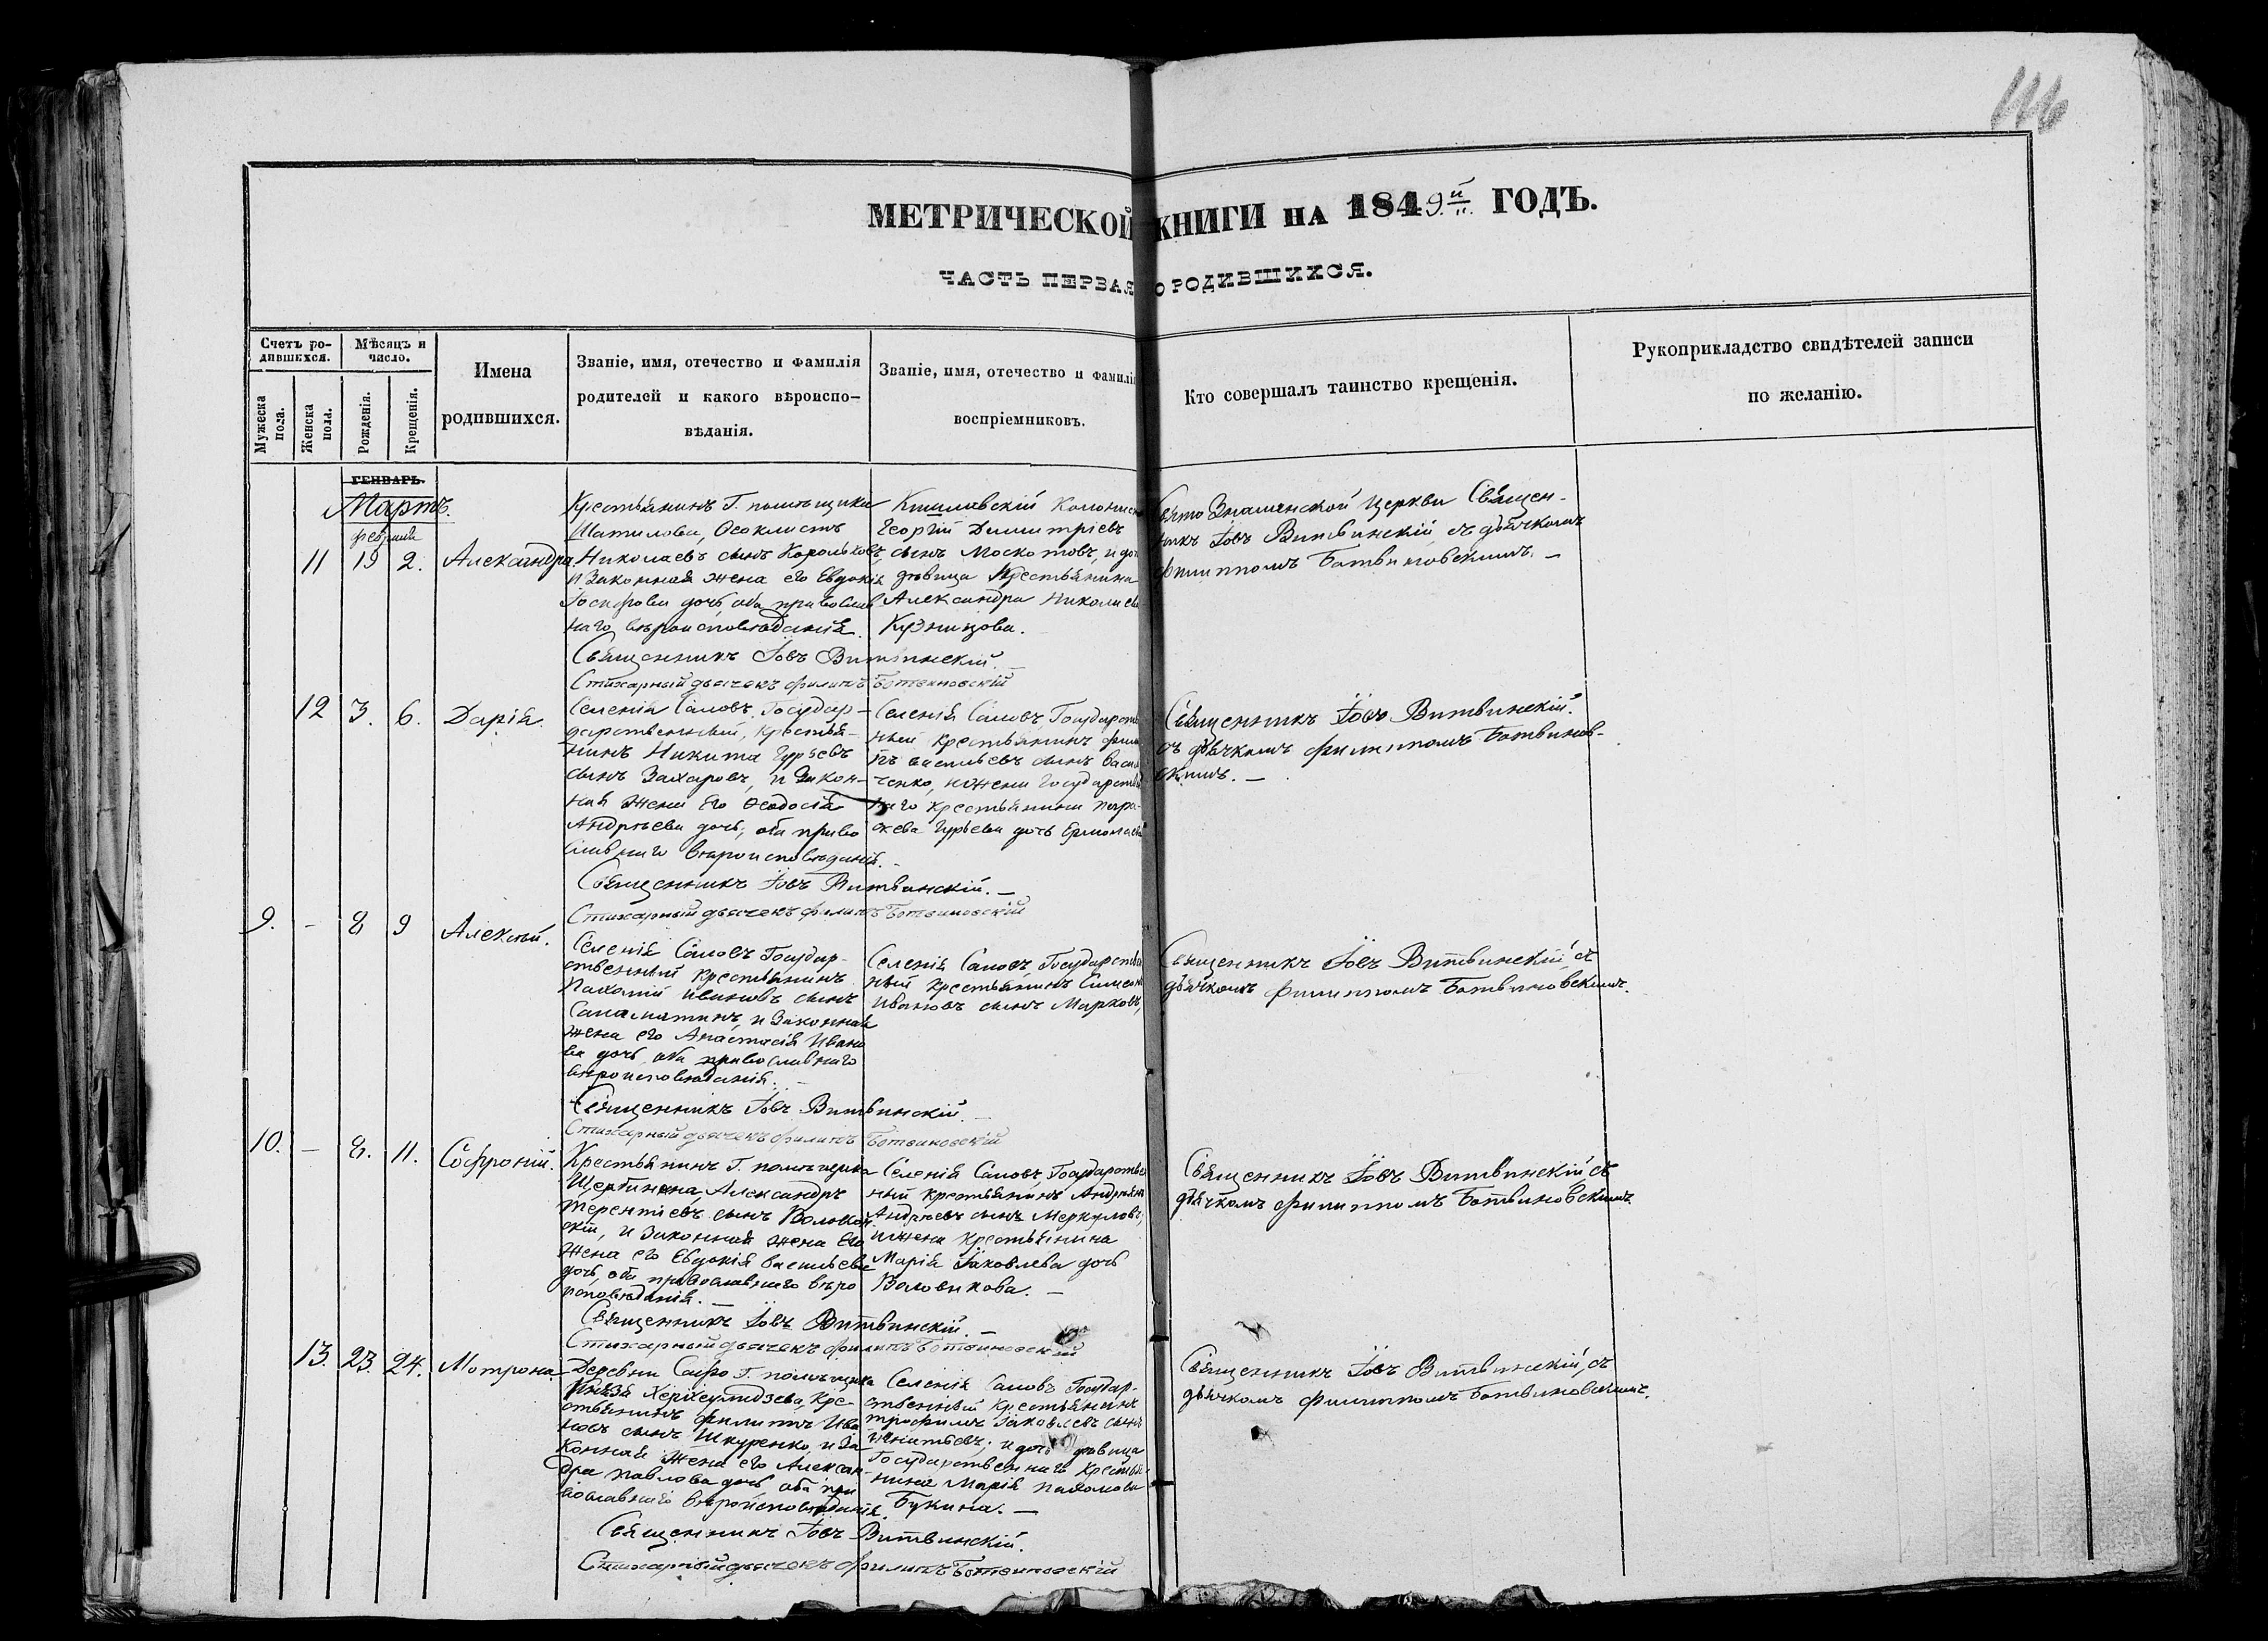 116
МЕТРИЧЕСКОЙ КНИГИ НА 1849й ГОДЪ.
ЧАСТЬ ПЕРВАЯ О РОДИВШИХСЯ.
Счетъ ро-
дившихся.
Мужеска пола.
Женска пола.
Мѣсяцъ и
число.
Рожденія.
Крещенія.
Имена
родившихся.
Званіе, имя, отечество и фамилія
родителей и какого вѣроиспо-
вѣданія.
Званіе, имя, отечество и фамилія
воспріемниковъ.
Кто совершалъ таинство крещенія.
Рукоприкладство свидѣтелей записи
по желанію.
ГЕНВАРЬ.
Мартъ.
февраля
11 19 2. Александра.
Крестьянинъ Г. помѣщика
Шатилова, Феоклистъ
Николаевъ сынъ Корольковъ,
и Законная жена его Евдокія
Іосифова дочь, оба православ
наго вѣроисповѣданія.
Священникъ Іовъ Витвинскій.
Стихарный дьячекъ Филипъ Ботвиновскій
Георгій Димитріевъ
сынъ Москотовъ, и доч
дѣвица Крестьянина
Александра Николаева
Кузницова.
Свято Знаменской Церкви Священ-
никъ Іовъ Витвинскій съ дьячкомъ
Филиппомъ Ботвиновскимъ. —
12 3. 6. Дарія.
Селенія Саловъ, Государ-
дарственный, крестья-
нинъ Никита Гурьевъ
сынъ Захаровъ, и Закон-
ная жена Его Феодосія
Андрѣева дочь, оба право
славнаго вѣроисповѣданія. -
Священникъ Іовъ Витвинскій. —
Стихарный дьячекъ Филипъ Ботвиновскій
Селенія Саловъ, Государств
ный крестьянинъ Фили
пъ васильевъ сынъ васил
ченко, и жена Государствен
наго крестьянина Пара-
скева Гурьева дочь Ермолаева
Священникъ Іовъ Витвинскій.
съ дьячкомъ Филиппомъ Ботвинов-
скимъ. —
9. - 8 9 Алексѣй.
Селенія Саловъ Государ-
ственный крестьянинъ
Пахомій Ивановъ сынъ
и Законная
жена его Анастасія Ивано
ва дочь оба православнаго
вѣроисповѣданія. —
Священникъ Іовъ Витвинскій. —
Стихарный дьячекъ Филипъ Ботвиновскій
Селенія Саловъ, Государствен
ный крестьянинъ Симеонъ
Ивановъ сынъ Марковъ,
Священникъ Іовъ Витвинскій, съ
дьячкомъ Филиппомъ Ботвиновскимъ.
10. - 8. 11. Софроній.
Крестьянинъ Г. помѣщика
Щербинина, Александръ
Терентіевъ сынъ Воловон
скій, и Законная жена Его
жена его Евдокія васильева
дочь, оба православнаго вѣро
исповѣданія. —
Священникъ Іовъ Витвинскій. —
Стихарный дьячекъ Филипъ Ботвиновскій
Селенія Саловъ, Государствен
ный крестьянинъ Андрѣянъ
Андрѣевъ сынъ Меркуловъ,
и жена крестьянина
Марія Яковлева дочь
Воловикова. —
Священникъ Іовъ Витвинскій съ
дьячкомъ Филиппомъ Ботвиновскимъ.
13. 23. 24. Мотрона
Деревни Сафо Г. помѣщика
Князя Херхеулидзева, Кре-
стьянинъ Филипъ Ива
новъ сынъ Шкуренко, и За
конная жена его Алексан-
дра Павлова дочь оба пра
вославнаго вѣроисповѣданія.
Священникъ Іовъ Витвинскій.
Стихарный дьячекъ Филипъ Ботвиновскій
Селенія Саловъ Государ-
ственный Крестьянинъ
Трофимъ Яковлевъ сынъ
Игнатьевъ; и дочь дѣвица
Государственнаго Крестья-
нина Марія Пахомова
Букина. —
Священникъ Іовъ Витвинскій, съ
дьячкомъ Филиппомъ Ботвиновскимъ.